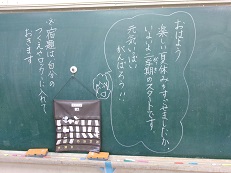 おはよう
楽しい夏休みをすごせましたか。
いよいよ二学期のスタートです。
元気いっぱい
がんばろう!!
※宿題は自分の
つくえやロッカーに入れて
おきます